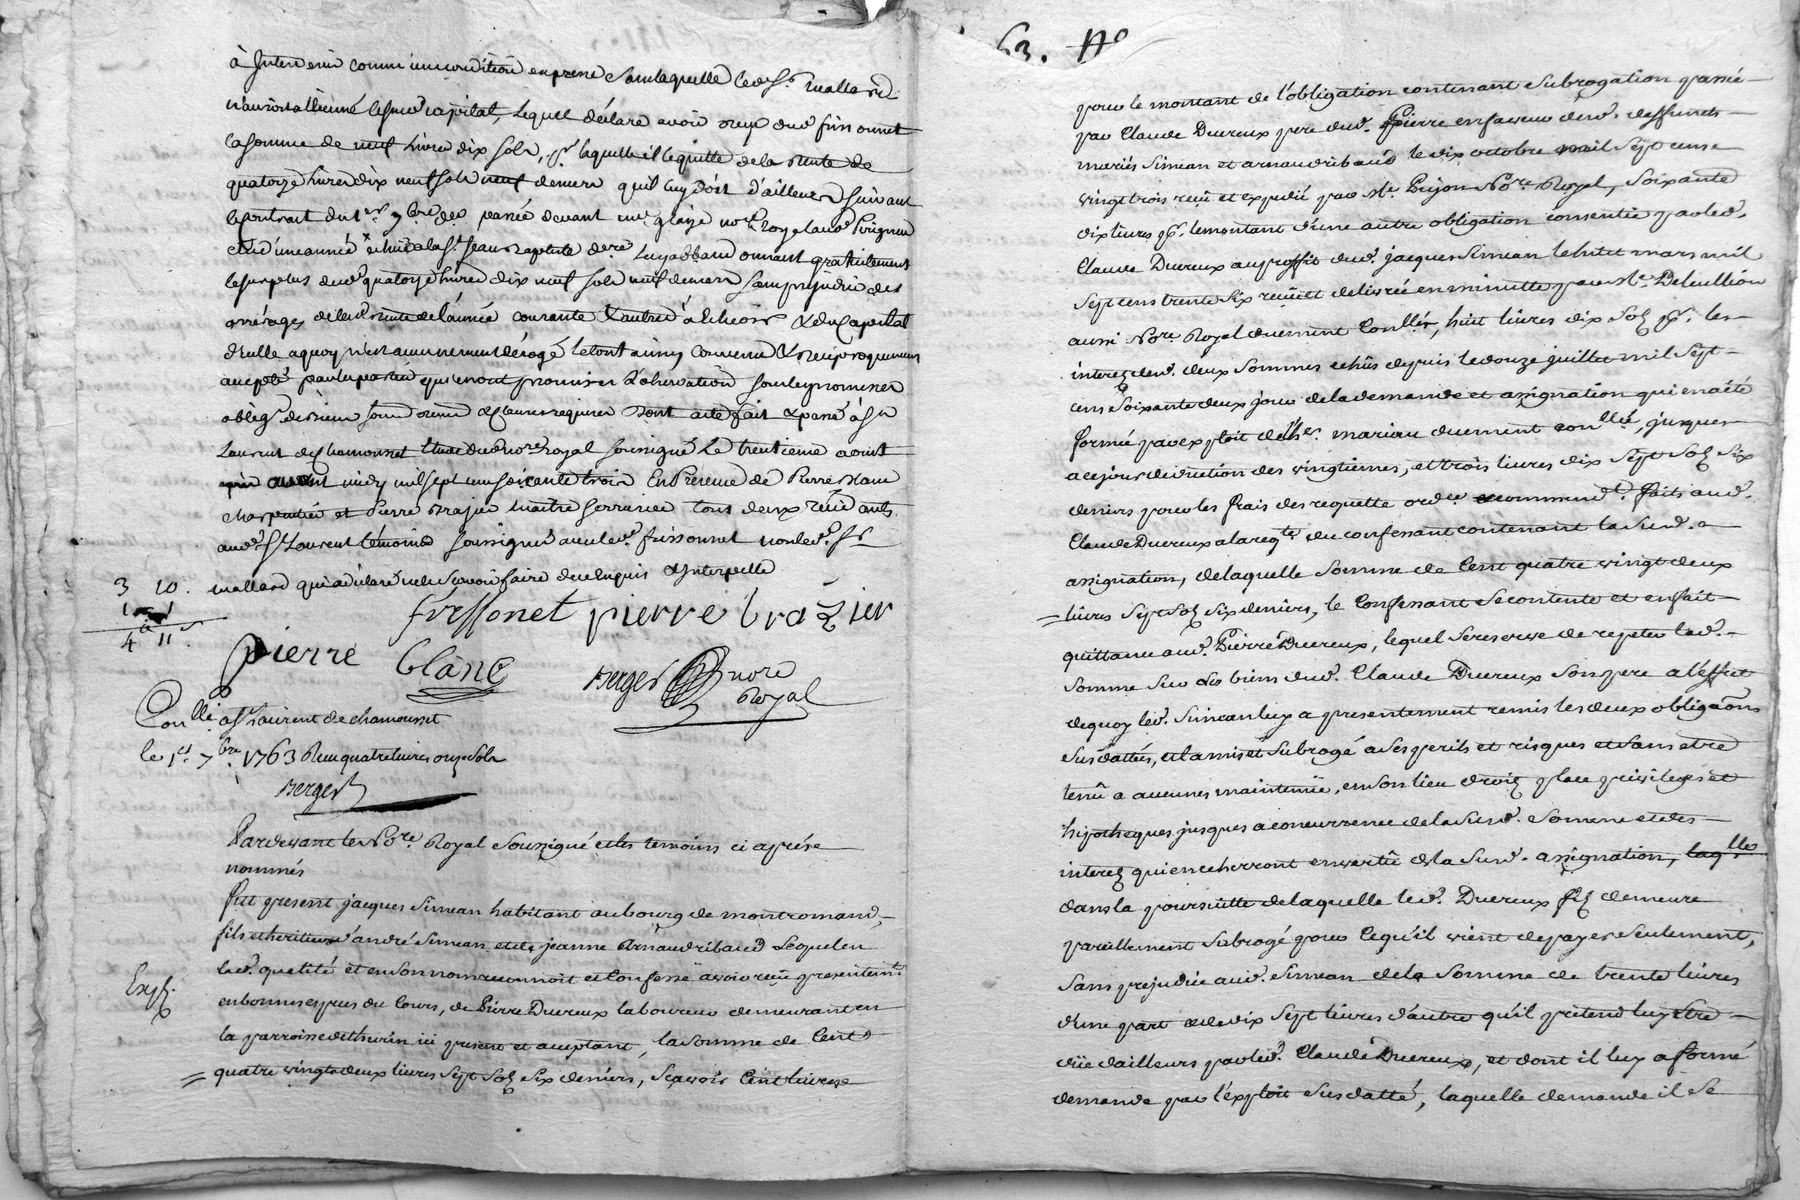 à Intervenir comme une condition expresse sans laquelle led. Sr. mallard
n'auroit aliené lesusd. capital, Lequel déclare avoir reçu dud. frissonnet
la somme de neuf Livres dix sols, pr. laquelle il le quitte de la rente de
quatorze livres dix neuf sols neuf deniers qu'il luy doit d'ailleurs suivant
le contrat du 1er. 7bre. passée devant me. glaize nore. royal aud. Pirignieu
d'une année échue à la St. Jean Baptiste dere. Luy abbandonnant gratuitement
le surplus desd. quatorze livres dix neuf sols neuf deniers sans prejudice des
arrérages de lad. rente de l'année courante & autres à Echeoir & du Capital
d'Icelle a quoy n'est aucunement dérogé le tout ainsy convenu & reciproquement
accepté par les parties qui en ont promis & observation sous les promesses
oblig. de biens soum. renon. & clauses requises Dont acte fait & passé à St.
Laurent de Chamousset Etude dud. nore. Royal soussigné Le trentieme aoust
avant midy mil sept cens soixante trois En Présence de Pierre Blanc
charpentier et Pierre Brazier maitre serrurier tous deux résidants
aud. St. Laurent témoins soussignés avec led. frissonnet non led. Sr.
mallard qui a déclaré ne le Scavoir faire de ce Enquis & Interpellé
3 10.
1 1
4 11
fressonet pierre brazier
pierre blanc
Berger nore Royal
Conllé a St. Laurent de chamousset
le 1er. 7bre. 1763 Reçu quatre livres onze Sols
Berger
Pardevant le Nore. Royal Soussigné et les temoins ci après
nommés
Exp.
Fut présent jacques Simean habitant au bourg de montromand,
fils et heritier d'andré Simean et de jeanne Arnaudribaud Lequel en
lad. qualité et en son nom reconnoit et Confesse avoir reçu presentemt.
en bonnes espèces du Cours, de Pierre Ducreux laboureur demeurant en
la parroisse de thurin ici present et aceptant, la somme de Cent
quatre vingt deux livres Sept Sols Six deniers, Sçavoir Cent livres
63.
pour le montant de l'obligation contenant subrogation passée
par Claude Ducreux pere dud. Pierre en faveur desd. deffunts
mariés Simean et arnaudribaud le dix octobre mil Sept cens
vingt trois reçu et expedié par Me. Pujon Nore. Royal, Soixante
dix livres pr. le montant d'une autre obligation consentie par led.
Claude Ducreux au proffit dud. jacques Simean le huit mars mil
Sept cens trente Six reçüe et delivrée en minutte par Me. Debullion
aussi Nore. Royal duement Conllée, huit livres dix Sols pr. les
interez desd. deux Sommes echûs depuis le douze juillet mil Sept
cens Soixante deux jour de la demande et assignation qui en a été
formée par exploit de Her. mariau duement conllé, jusques
a ce jour deduction des vingtiemes, et trois livres dix Sept Sols Six
deniers pour les frais des requette ordce. et commend. faits aud.
Claude Ducreux a la reqte. du confessant contenant la Susd.
assignation, de laquelle Somme de Cent quatre vingt deux
livres Sept Sols Six deniers, le Confessant Se contente et en fait
quittance aud. Pierre Ducreux, lequel Se reserve de repeter lad.
Somme Sur les biens dud. Claude Ducreux Son pere a l'effet
de quoy led. Simean lui a presentement remis les deux obligaons
Susdattées, et l'a mis et Subrogé a Ses perils et risques et Sans etre
tenû a aucunes maintenüe, en Son lieu droit place privileges et
hipotheques jusques a concurrence de la Susd. Somme et des
interez qui en echerront en vertû de la Susd. assignation, laqlle
dans la poursuitte de laquelle led. Ducreux fils demeure
pareillement Subrogé pour Ce qu'il vient de payer Seulement,
Sans prejudice aud. Simean de la Somme de trente livres
d'une part et de dix Sept livres d'autre qu'il prétend luy être
düe d'ailleurs par led. Claude Ducreux, et dont il luy a formé
demande par l'exploit Susdatté, laquelle demande il Se